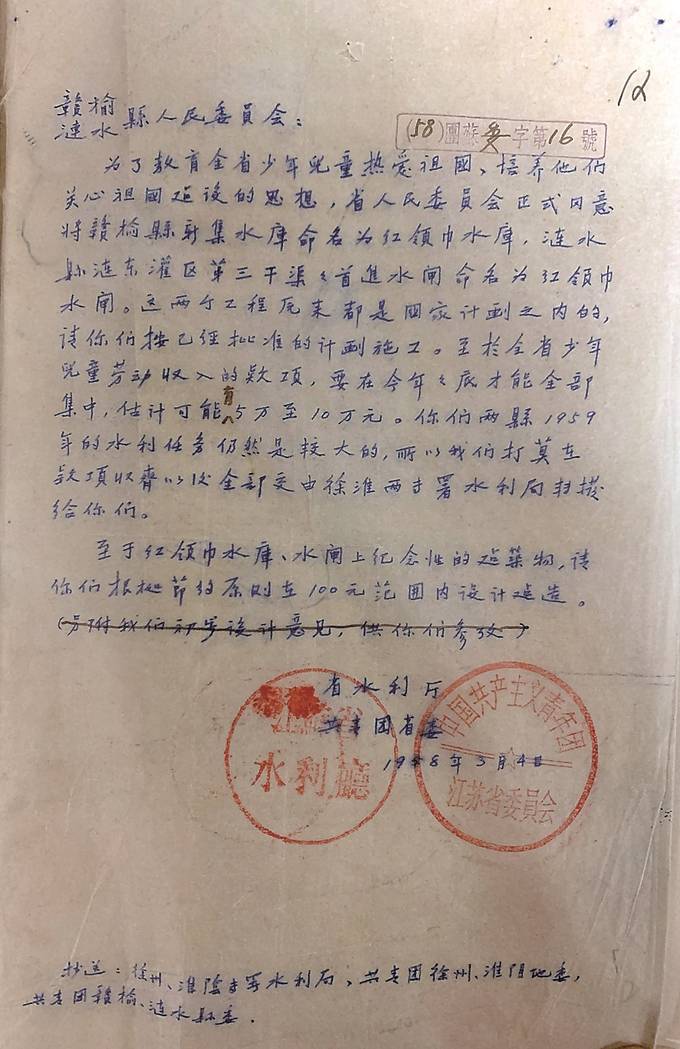 12
赣榆
涟水縣人民委員会：
(58)團蘇 字第16號
为了教育全省少年兒童热爱祖國、培养他们
关心祖國建设的思想，省人民委員会正式同意
将赣榆縣 集水庫命名为红领巾水庫，涟水
縣涟东灌区第三干渠之首進水闸命名为红领巾
水闸。这两个工程原来都是國家计劃之内的，
请你们按已经批准的计劃施工。至於全省少年
兒童劳动收入的欵项，要在今年年底才能全部
集中，估计可能有5万至10万元。你们两縣1959
年的水利任务仍然是较大的，所以我们打算在
欵項收齊以後全部交由徐淮两专署水利局 拨
给你们。
至于红领巾水庫、水闸上纪念性的建築物，请
你们根據節约原则在100元范围内设计建造。
(另附我们初步设计意見，供你们参攷)
省水利厅
共青团省委
1958年3月4日
江蘇省
水利廳
中国共产主义青年团
江苏省委員会
抄送：徐州、淮陰专署水利局、共青团徐州、淮阴地委，
共青团赣榆、涟水縣委．